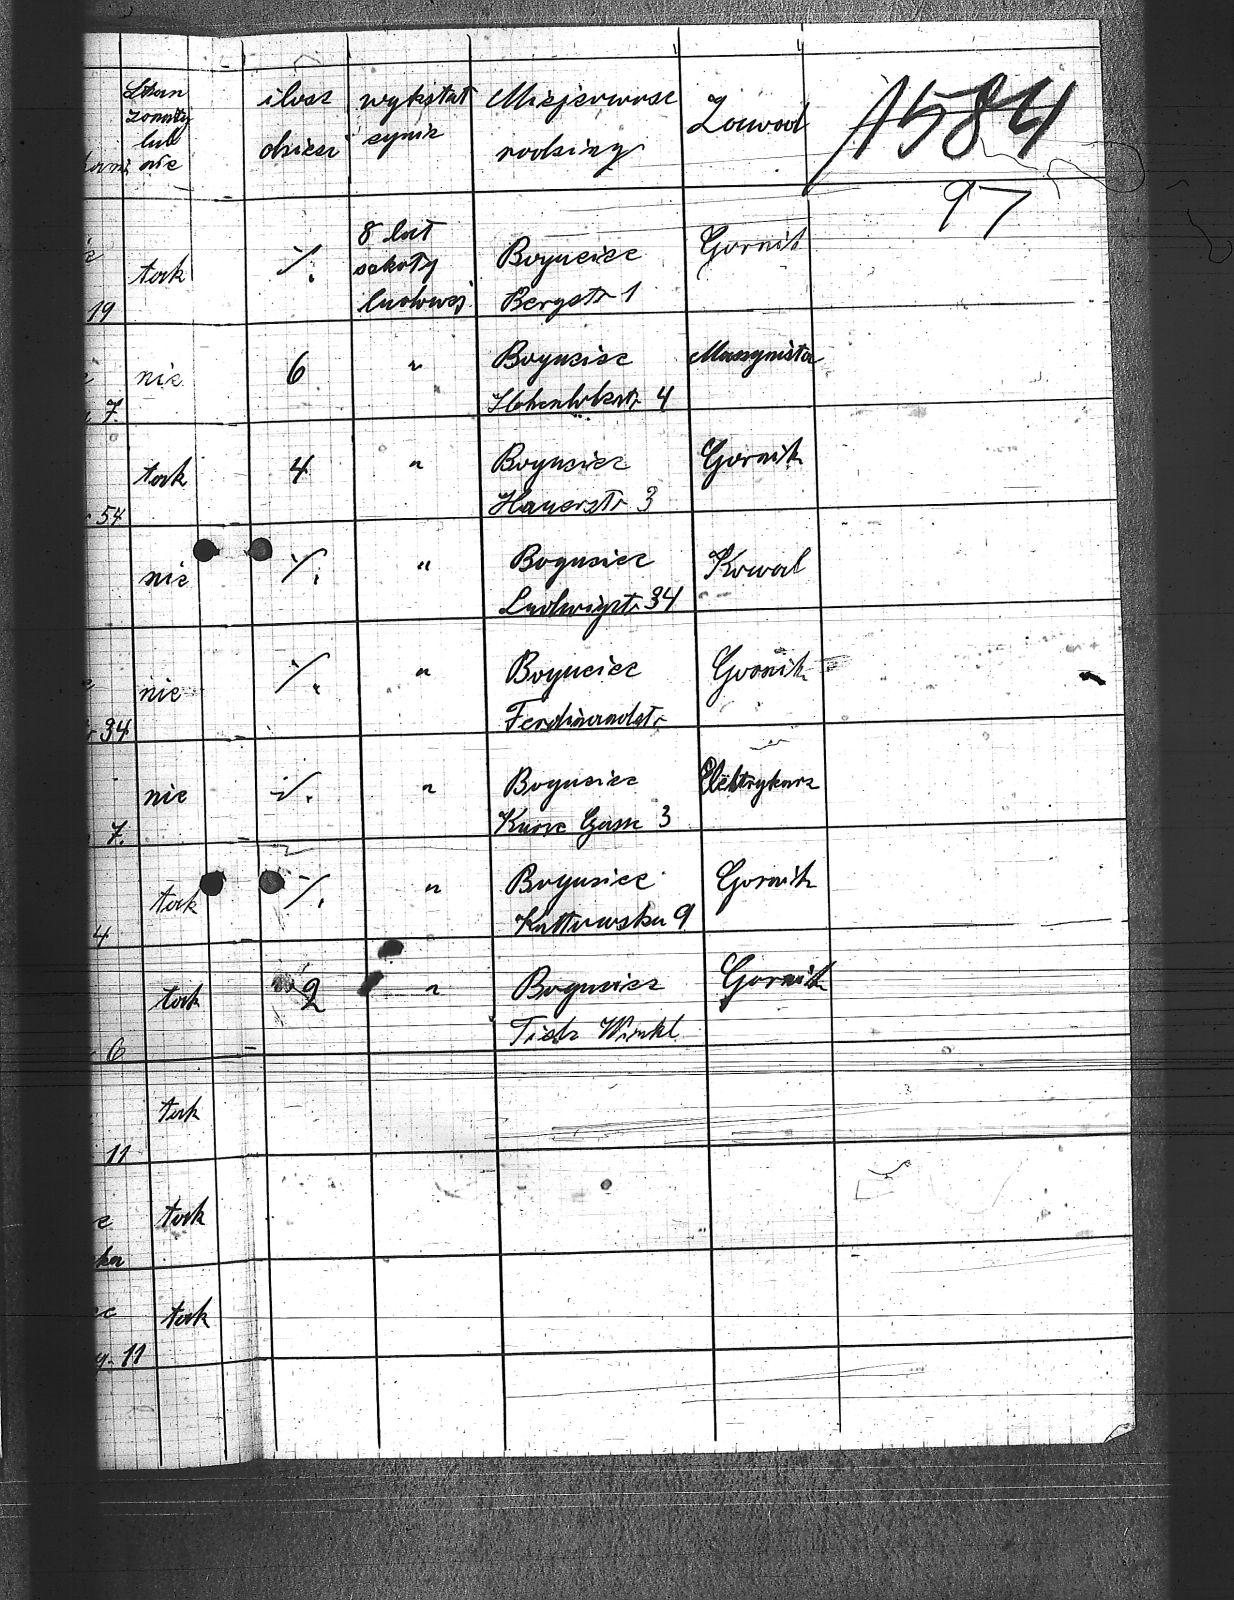 Stan ilosc wykstat Miejscowosc Zawod A584
zonaty dzieci cenie rodziny
lub
nie
97
tak ·/. 8 lat Bogucice Gornik
szkoty
19 ludowej Bergstr 1
nie 6 " Bogucice Maszynista
7. Hohenlohestr 4
tak 4 " Bogucice Gornik
54 Hauerstr 3
nie ·/. " Bogucice Kowal
Ludwigstr 34
nie ·/. " Bogucice Gornik
34 Ferdinandstr
nie ·/. " Bogucice Elektrykarz
7. Kurze Gasse 3
tak ·/. " Bogucice Gornik
4 Kattowska 9
tak 2 " Bogucice Gornik
6 Winkl.
tak
11
tak
ka
tak
11